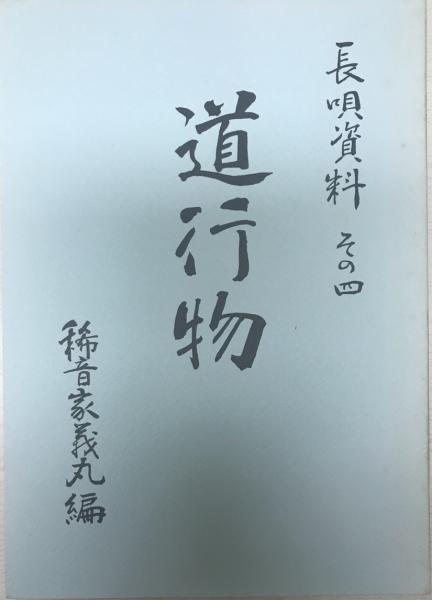 長唄資料 その四
道行物
稀音家義丸編